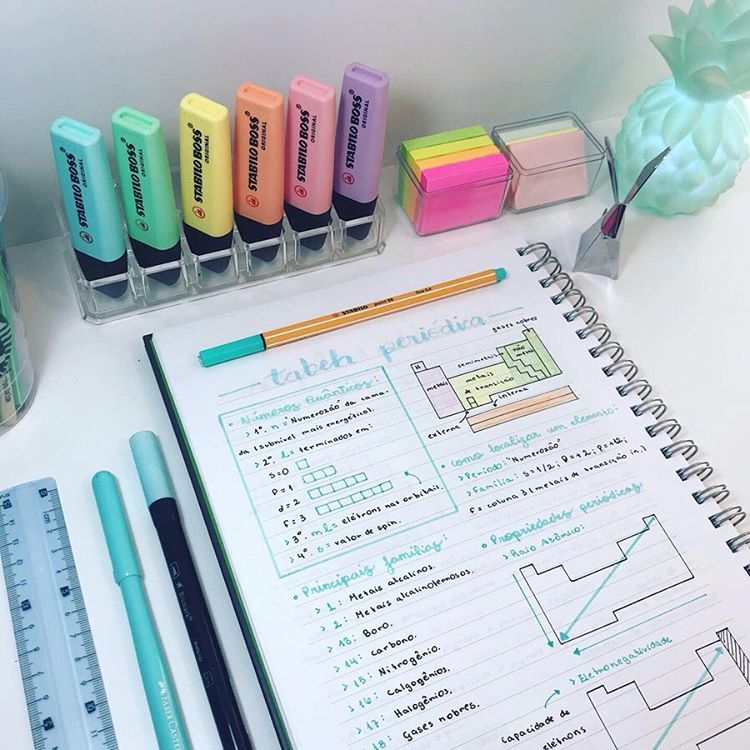 STABILO BOSS ORIGINAL
STABILO BOSS ORIGINAL
STABILO BOSS ORIGINAL
STABILO BOSS ORIGINAL
STABILO BOSS ORIGINAL
STABILO BOSS ORIGINAL
STABILO point 88 fine 0,4
tabela periódica
• Números Quânticos:
> 1º. n = "Numerozão" da cama-
da (subnível mais energético).
> 2º. l = terminados em:
S=0
P=1
d=2
F=3
> 3º ml = elétrons nas orbitais.
> 4º. s = valor de spin.
• Principais famílias:
> 1: Metais alcalinos.
> 2: Metais alcalinoterrosos.
> 13: Boro.
> 14: Carbono.
> 15: Nitrogênio.
> 16: Calgogênios.
> 17: Halogênios.
> 18: Gases nobres.
gases nobres
H
semimetais
não
metais
metais
de transição
interna
externa
• como localizar um elemento:
> Período: "Numerozão"
> Família: S=1/2; P=+2; P=+12;
F = coluna 3 (metais de transição in.)
• Propriedades periódicas
> Raio Atômico:
> Eletronegatividade
Capacidade de
elétrons
FABER-CASTELL